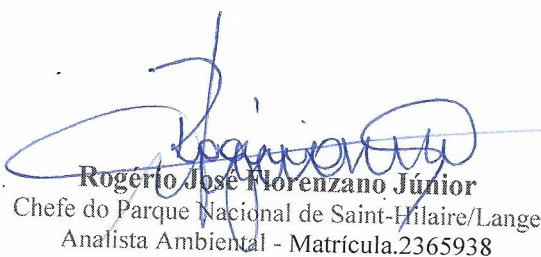 Rogério José Florenzano Júnior
Chefe do Parque Nacional de Saint-Hilaire/Lange
Analista Ambiental - Matrícula.2365938